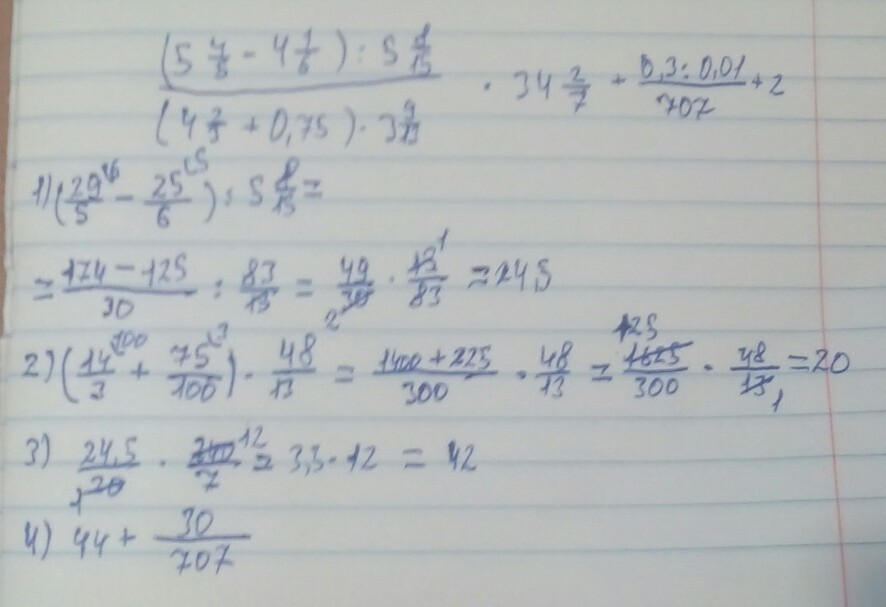 (5 4/5 - 4 1/6) : 5 8/15
(4 2/3 + 0,75) · 3 9/13 · 34 2/7 + 0,3 : 0,01/707 + 2
1) (29/5 ⁽⁶ - 25/6 ⁽⁵) : 5 8/15 =
= 174 - 125/30 : 83/15 = 49/30 2 · 15/83 1 = 24,5
2) (14/3 ⁽¹⁰⁰ + 75/100 ⁽³) · 48/13 = 1400 + 225/300 · 48/13 = 1625/300 125 · 48/13 1 = 20
3) 24,5/20 1 · 240/7 12 = 3,5 · 12 = 42
4) 44 + 30/707